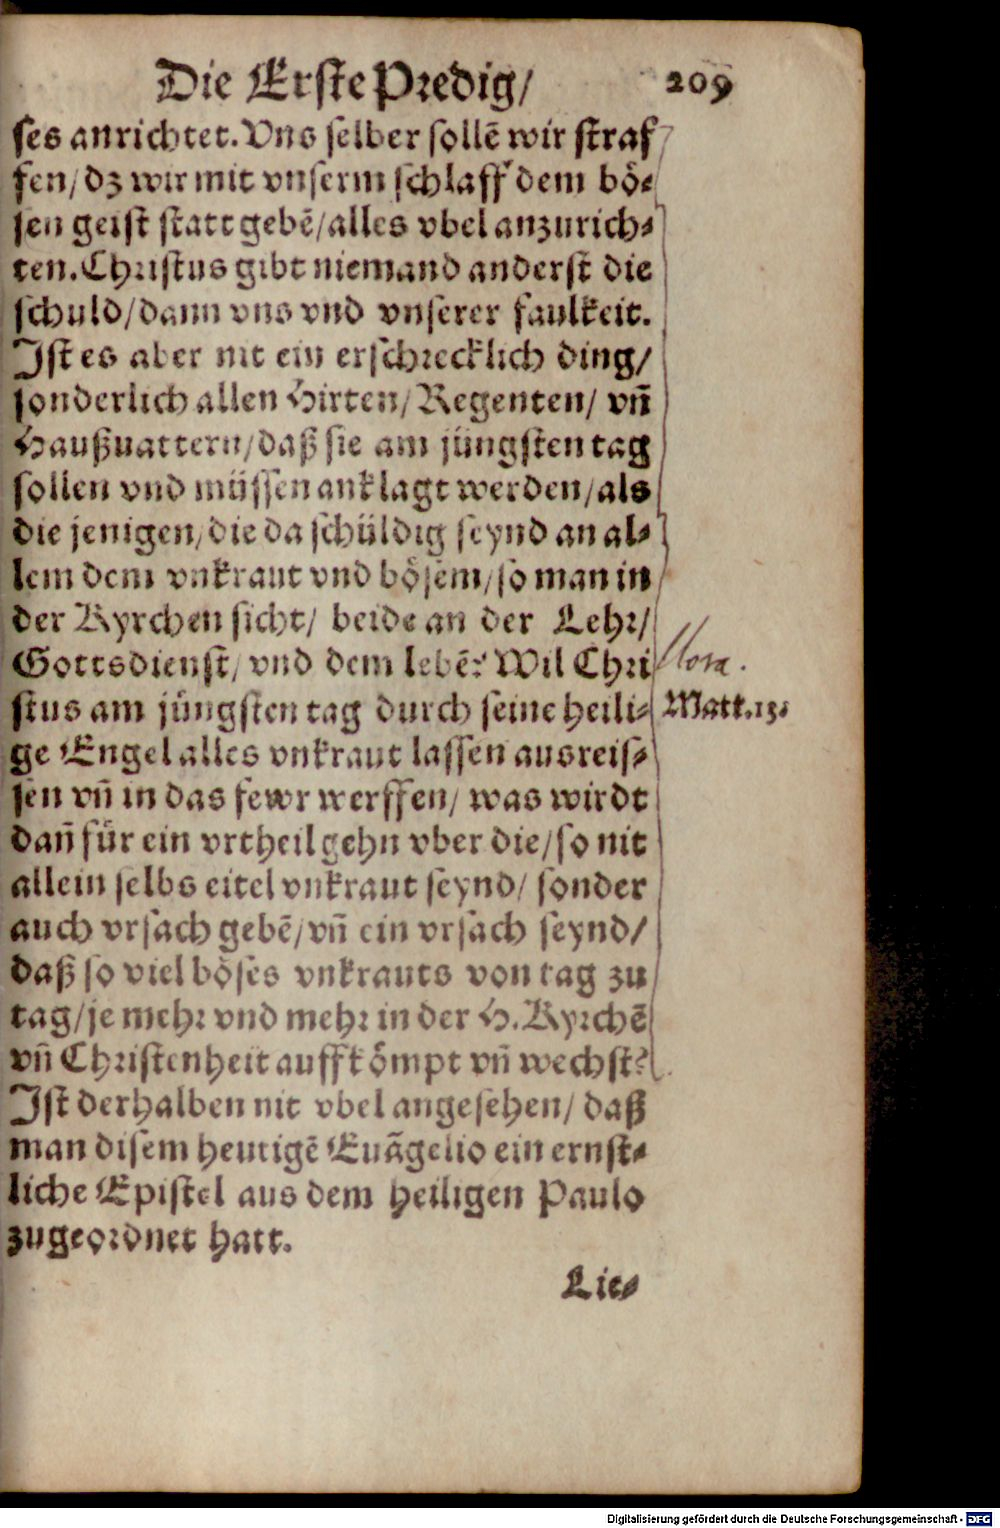 Die Erste Predig/ 209
ses anrichtet. Vns selber sollē wir straf
fen/ dz wir mit vnserm schlaff dem bö-
sen geist statt gebē/ alles vbel anzurich-
ten. Christus gibt niemand anderst die
schuld/ dann vns vnd vnserer faulkeit.
Ist es aber nit ein erschrecklich ding/
sonderlich allen Hirten/ Regenten/ vñ
Haußvattern/ daß sie am jüngsten tag
sollen vnd müssen anklagt werden/ als
die jenigen/ die da schüldig seynd an al-
lem dem vnkraut vnd bösem/ so man in
der Kyrchen sicht/ beide an der Lehr/
Gottsdienst/ vnd dem lebē? Wil Chri
Nota.
stus am jüngsten tag durch seine heili-
Matt. 13.
ge Engel alles vnkraut lassen ausreis-
sen vñ in das fewr werffen/ was wirdt
dañ für ein vrtheil gehn vber die/ so nit
allein selbs eitel vnkraut seynd/ sonder
auch vrsach gebē/ vñ ein vrsach seynd/
daß so viel böses vnkrauts von tag zu
tag/ je mehr vnd mehr in der H. Kyrchē
vñ Christenheit auffkömpt vñ wechst?
Ist derhalben nit vbel angesehen/ daß
man disem heutigē Euāgelio ein ernst-
liche Epistel aus dem heiligen Paulo
zugeordnet hatt.
Lie-
Digitalisierung gefördert durch die Deutsche Forschungsgemeinschaft - DFG